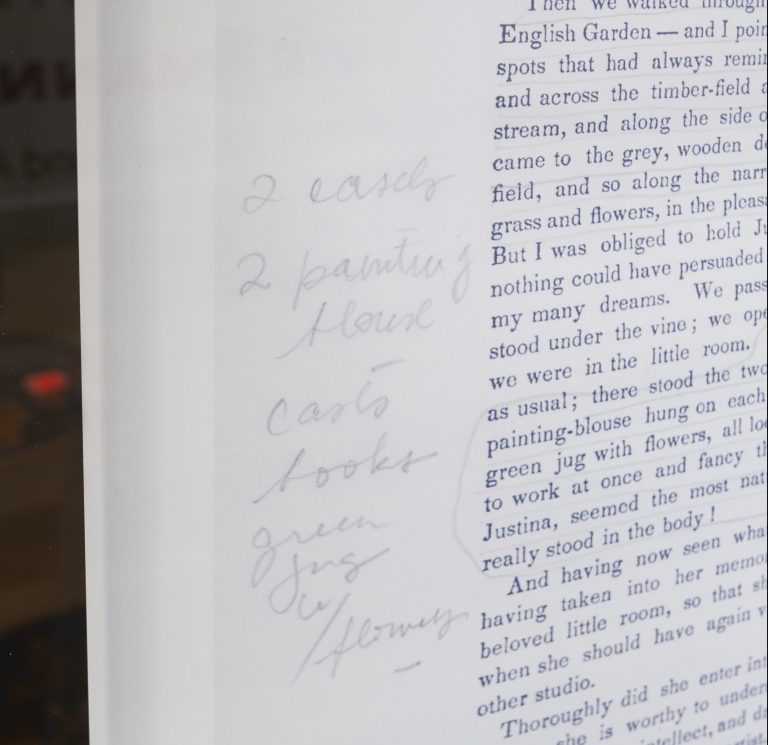 2 easels
2 painting
blouse
casts
books
green
jug
w/
flowers
Then we walked through
English Garden — and I poin
spots that had always remin
and across the timber-field a
stream, and along the side o
came to the grey, wooden do
field, and so along the narr
grass and flowers, in the pleas
But I was obliged to hold Ju
nothing could have persuaded
my many dreams. We pass
stood under the vine; we ope
we were in the little room.
as usual; there stood the two
painting-blouse hung on each
green jug with flowers, all loo
to work at once and fancy th
Justina, seemed the most nat
really stood in the body!
And having now seen wha
having taken into her memo
beloved little room, so that sh
when she should have again v
other studio.
Thoroughly did she enter int
she is worthy to under
intellect, and d